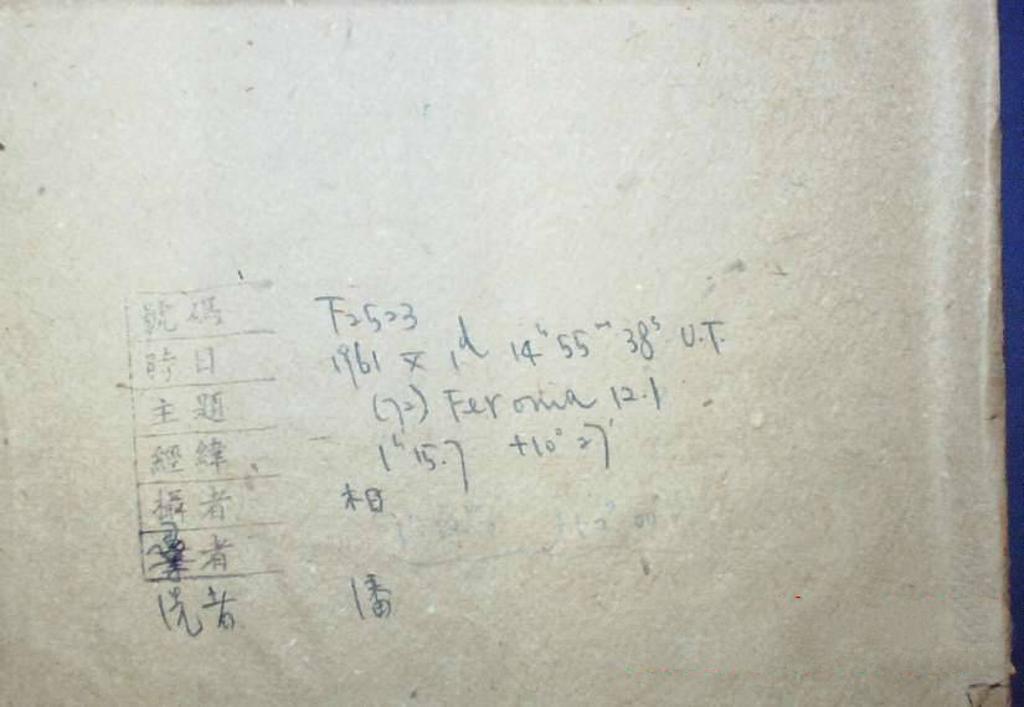 號碼 F2523
時日 1961 X 1ᵈ 14ʰ 55ᵐ 38ˢ U.T.
主題 (72) Feronia 12.1
經緯 1ʰ 15.7 +10° 27'
攝者 相
者
洗者 潘